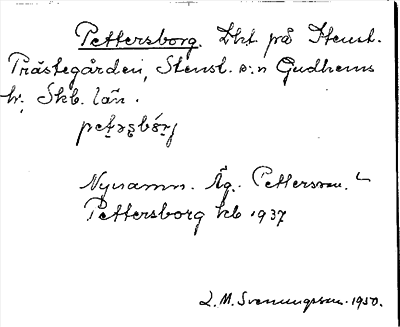 Pettersborg. Lht på Stenst.
Prästegården, Stenst. s:n Gudhems
hd, Skb. län.
Nynamn. Äg. Pettersson.
Pettersborg kb 1937
L. M. Svenungsson. 1950.